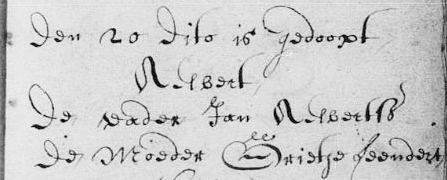 Den 20 dito is gedoopt
Alwert
De vader Jan Alwertss
de Moeder Grietje leendert